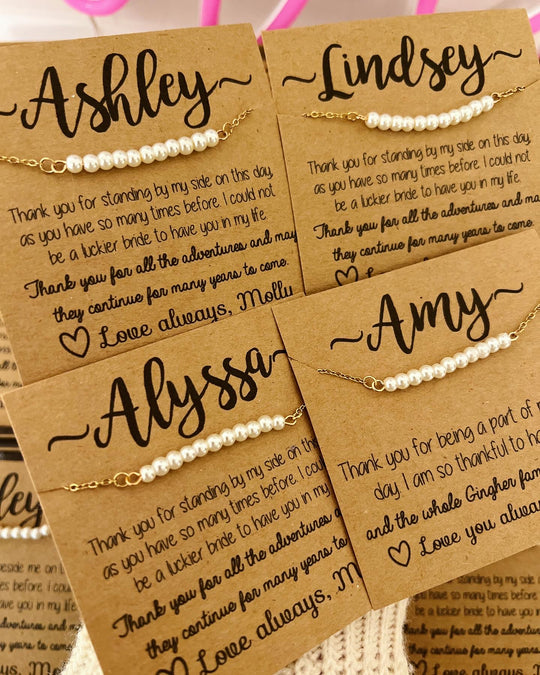 ~Ashley~
Thank you for standing by my side on this day,
as you have so many times before. I could not
be a luckier bride to have you in my life.
Thank you for all the adventures and may
they continue for many years to come.
♡ Love always, Molly
~Lindsey~
Thank you for standing by my side on this day,
as you have so many times before. I could not
be a luckier bride to have you in my life.
Thank you for all the adventures and may
they continue for many years to come.
♡ Love always,
~Alyssa~
Thank you for standing by my side on this
as you have so many times before. I could
be a luckier bride to have you in
Thank you for all the adventures
they continue for many years to
♡ Love always, Moll
~Amy~
Thank you for being a part of
day. I am so thankful to
and the whole Gingher fam
♡ Love you alway
ley
beside me on
times before. I could
have you in my life.
adventures and
years to come.
ways, Mo